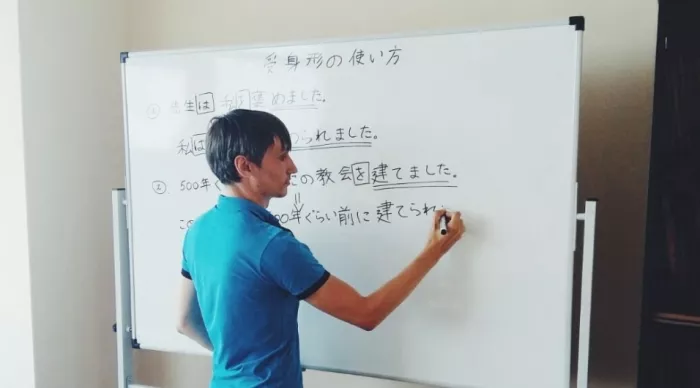 受身形の使い方
① 先生は 私を褒めました。
私は められました。
② 500年ぐ この教会を建てました。
この 00年ぐらい前に建てられ